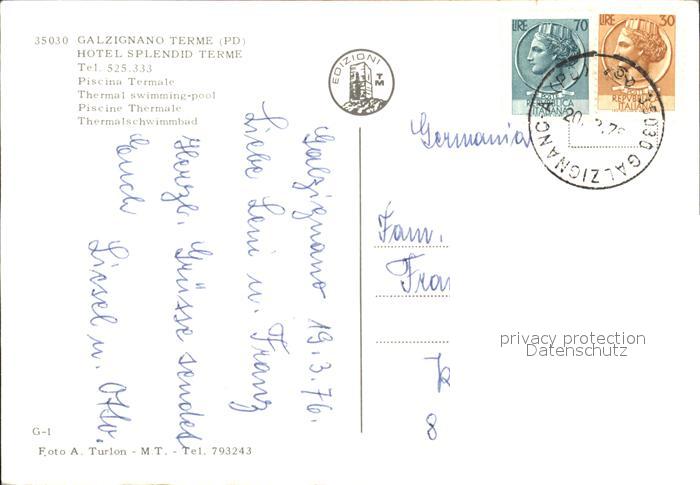 35030 GALZIGNANO TERME (PD)
HOTEL SPLENDID TERME
Tel. 525.333
Piscina Termale
Thermal swimming-pool
Piscine Thermale
Thermalschwimmbad
EDIZIONI TM
LIRE 70
POSTE
REPVBBLICA
ITALIANA
LIRE 30
POSTE
REPVBBLICA
ITALIANA
35030 GALZIGNANO
Galzignano 19.3.76.
Liebe Leni u. Franz
Herzl. Grüsse sendet
Euch
Liesel u. Otto.
Germania
Fam.
Fra
8
privacy protection
Datenschutz
G-1
Foto A. Turlon - M.T. - Tel. 793243